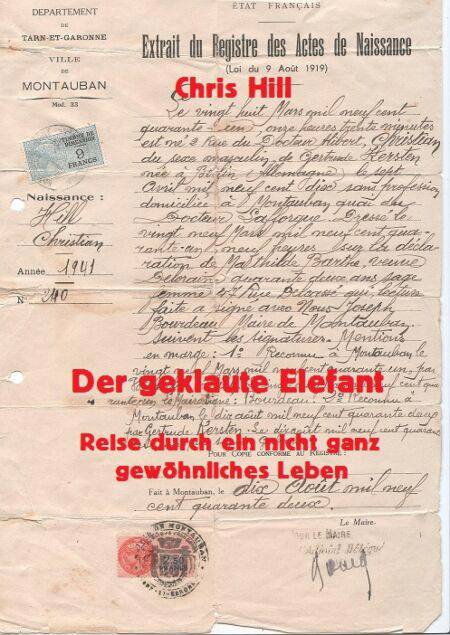 DÉPARTEMENT
DE
TARN-ET-GARONNE
VILLE
DE
MONTAUBAN
Mod. 33
TIMBRE DE DIMENSION
9
FRANCS
Naissance :
Hill
Christian
Année 1941
N° 240
ÉTAT FRANÇAIS
Extrait du Registre des Actes de Naissance
(Loi du 9 Août 1919)
Chris Hill
Le vingt huit Mars mil neuf cent
quarante onze heures trente minutes
est né 2 Rue du Docteur Christian
du sexe masculin de Gertrude Kersten
née à (Allemagne) le sept
Avril mil neuf cent dix sans profession
domiciliée à Montauban quai du
Docteur Lafforgue Dressé le
vingt neuf Mars mil neuf cent qua-
neuf heures sur la décla-
ration de Mathilde Barthe, veuve
quarante deux ans sage
femme 47 Rue qui, lecture
faite a signé avec Nous Joseph
Bourdeau Maire de Montauban
Suivent les signatures. Mentions
en marge : 1° Reconnu à Montauban le
vingt Mars mil neuf cent quarante un par
Der geklaute Elefant
Bourdeau: 2° Reconnu à
Montauban le dix août mil neuf cent quarante deux
par Gertrude Kersten. Le dix août mil neuf cent quarante
Reise durch ein nicht ganz
POUR COPIE CONFORME AU REGISTRE :
gewöhnliches Leben
Fait à Montauban, le dix Août mil neuf
cent quarante deux.
Le Maire.
POUR LE MAIRE